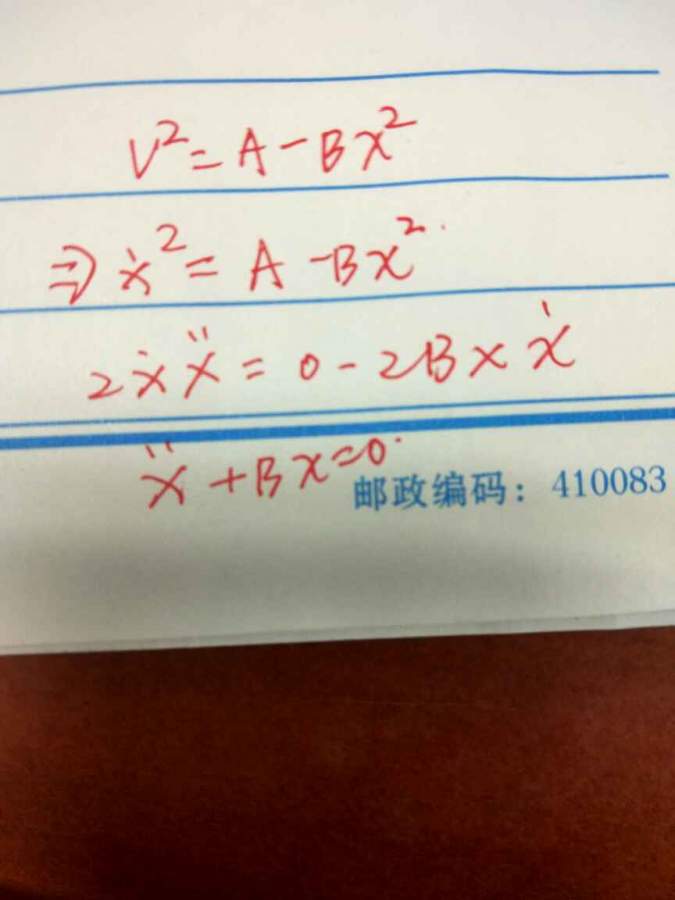 V² = A - Bx²
⇒ ẋ² = A - Bx²
2ẋẍ = 0 - 2Bxẋ
ẍ + Bx = 0
邮政编码：410083